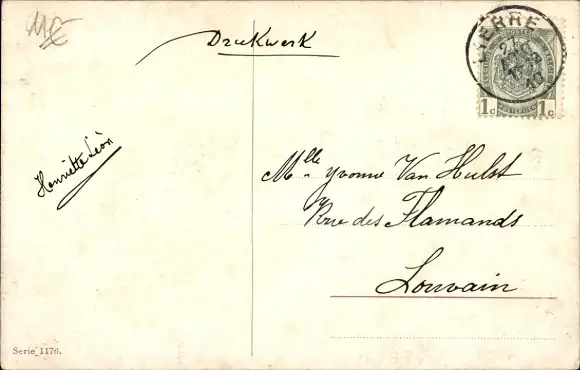 Drukwerk
LIERRE
10
1c 1c
Henriette Léon
Mlle Yvonne Van Hulst
Rue des Flamands
Louvain
Serie_1176.